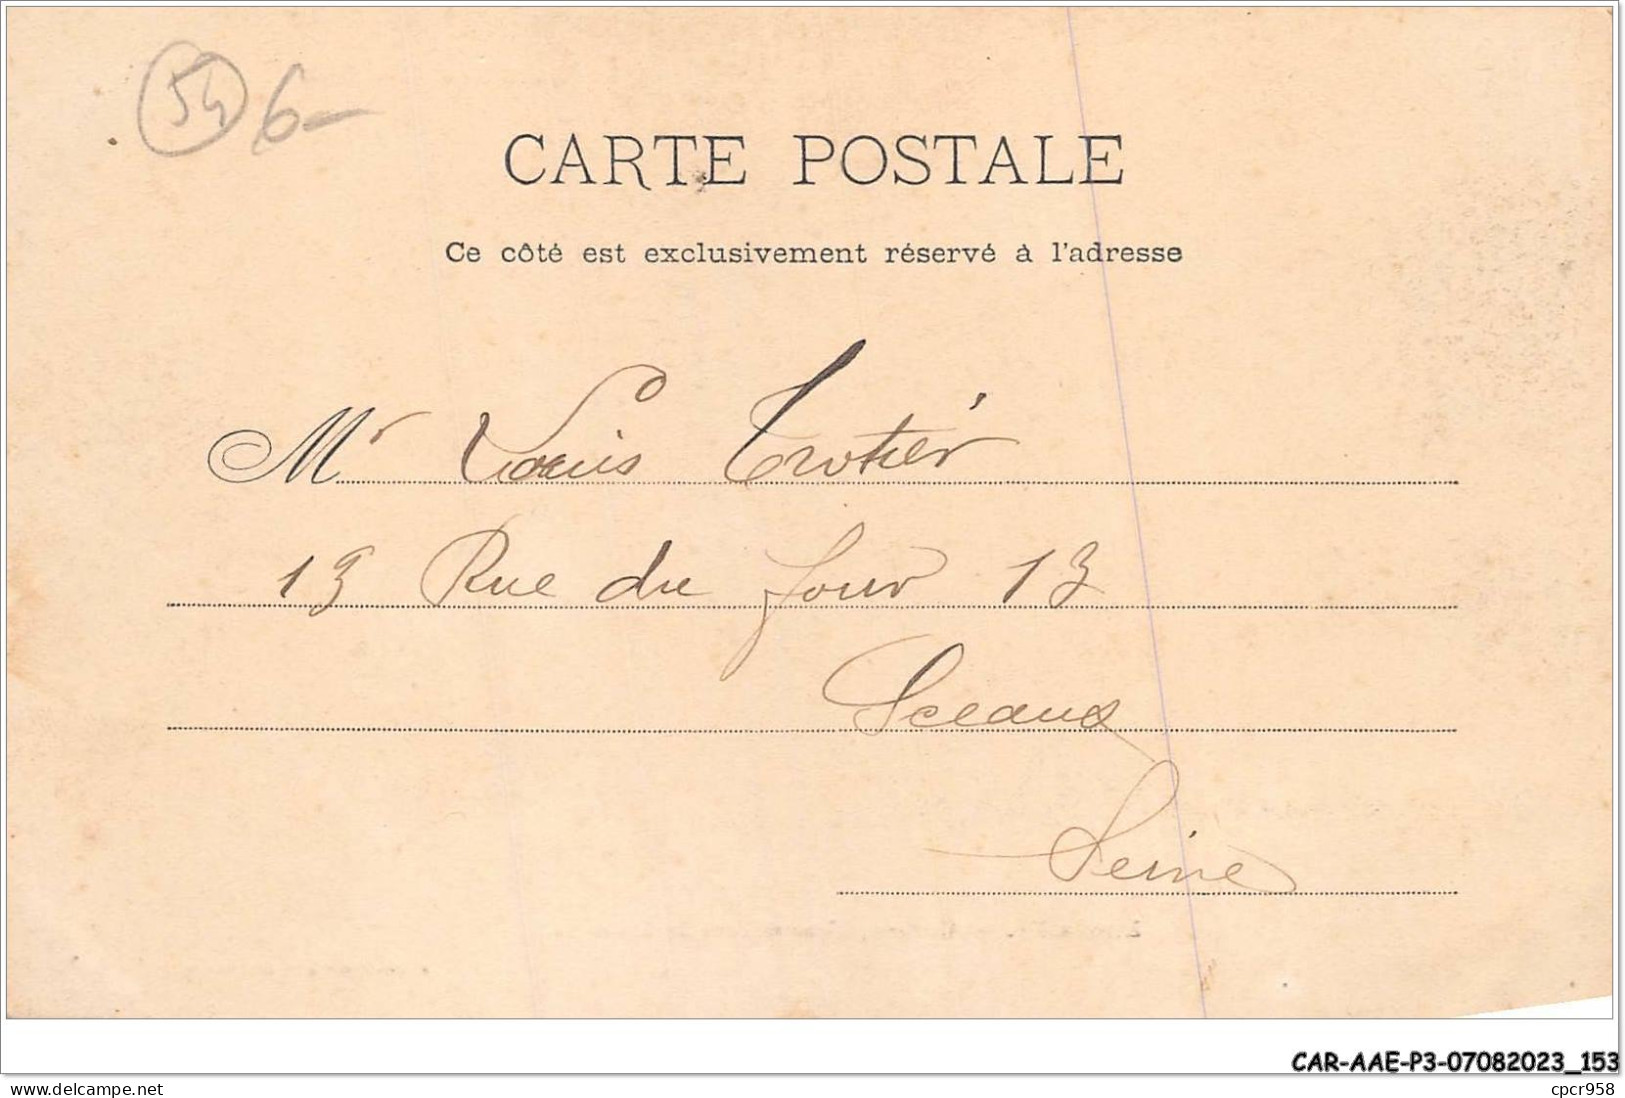 54 6-
CARTE POSTALE
Ce côté est exclusivement réservé à l'adresse
Mr Louis Trotier
13 Rue du Jour 13
Sceaux
Seine
CAR-AAE-P3-07082023_153
www.delcampe.net
cpcr958